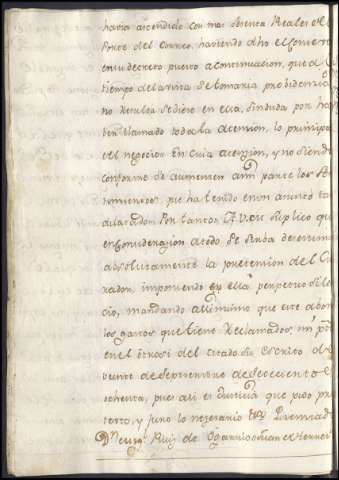 havia ascendido con mas Renta Reales el
Porte del Correo, haviendo dho el Convento
en su decreto puesto a continuacion, que al
tiempo de la vista se tomaria providencia
no resulta se diese en ella, sin duda por ha
ber llamado toda la atencion, lo principal
del negocio en cuia atencion, y no siendo
conforme se aumenten a mi parte los de
que ha tenido en un asunto tan
dilatado. Por tanto = A V. en suplico que
en consideracion a todo se sirva determinar
absolutamente la pretension del Cu
rador, imponiendo en ella perpetuo sile
cio, mandando asimismo que este abone
los gastos que tiene reclamados, mi pte
en el otrosi del citado su Escrito de
veinte de Septiembre de setecientos
ochenta, pues asi es Justicia que pido pro
testo, y juro lo nezesario
Ruiz de